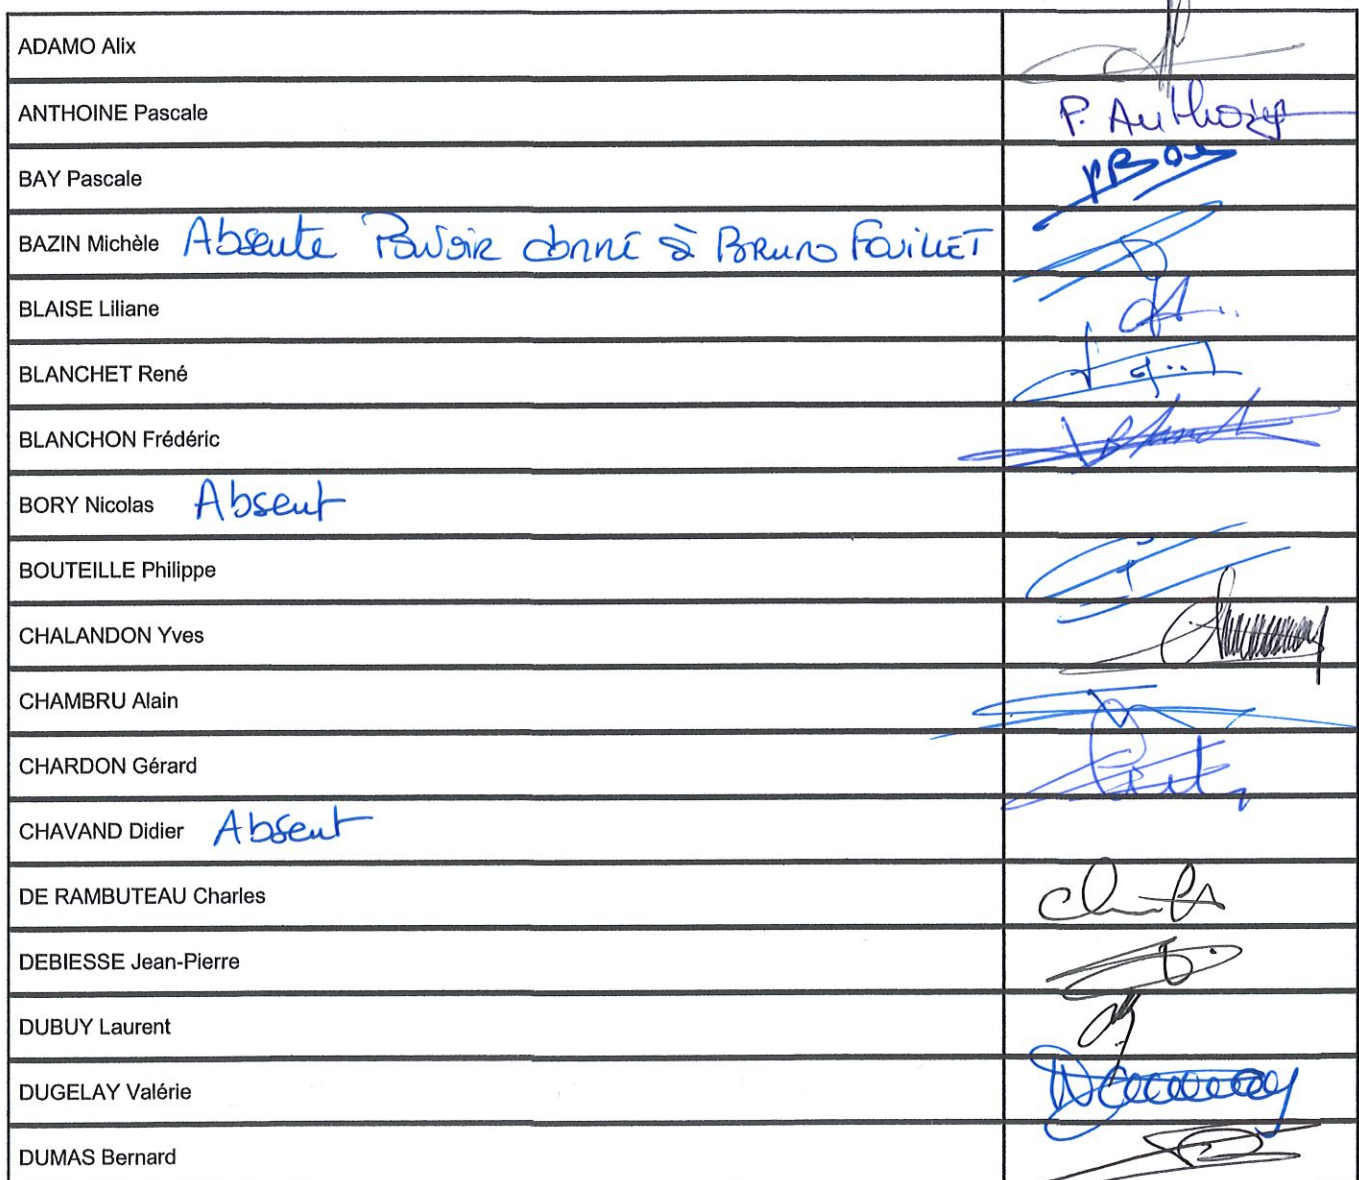 ADAMO Alix
ANTHOINE Pascale P. Anthoine
BAY Pascale
BAZIN Michèle Absente Pouvoir donné à Bruno FOUILLET
BLAISE Liliane
BLANCHET René
BLANCHON Frédéric
BORY Nicolas Absent
BOUTEILLE Philippe
CHALANDON Yves
CHAMBRU Alain
CHARDON Gérard
CHAVAND Didier Absent
DE RAMBUTEAU Charles
DEBIESSE Jean-Pierre
DUBUY Laurent
DUGELAY Valérie
DUMAS Bernard